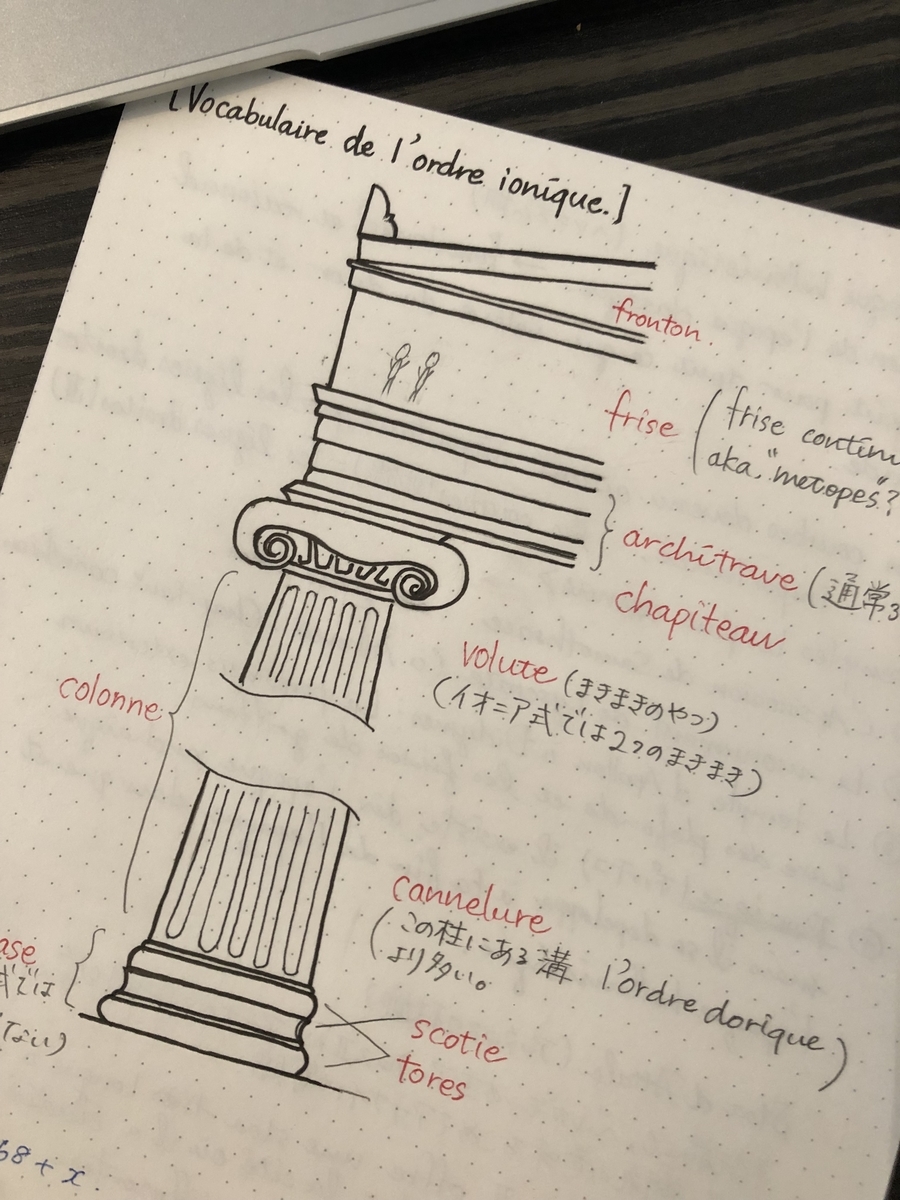 [Vocabulaire de l'ordre ionique.]
fronton.
frise (frise continu
aka. "metopes"?
architrave (通常3
chapiteau
volute (まきまきのやつ)
(イオニア式では2つのまきまき)
colonne
cannelure
(この柱にある溝 l'ordre dorique)
より多い。
ase
式では
てない)
scotie
tores
68 + x